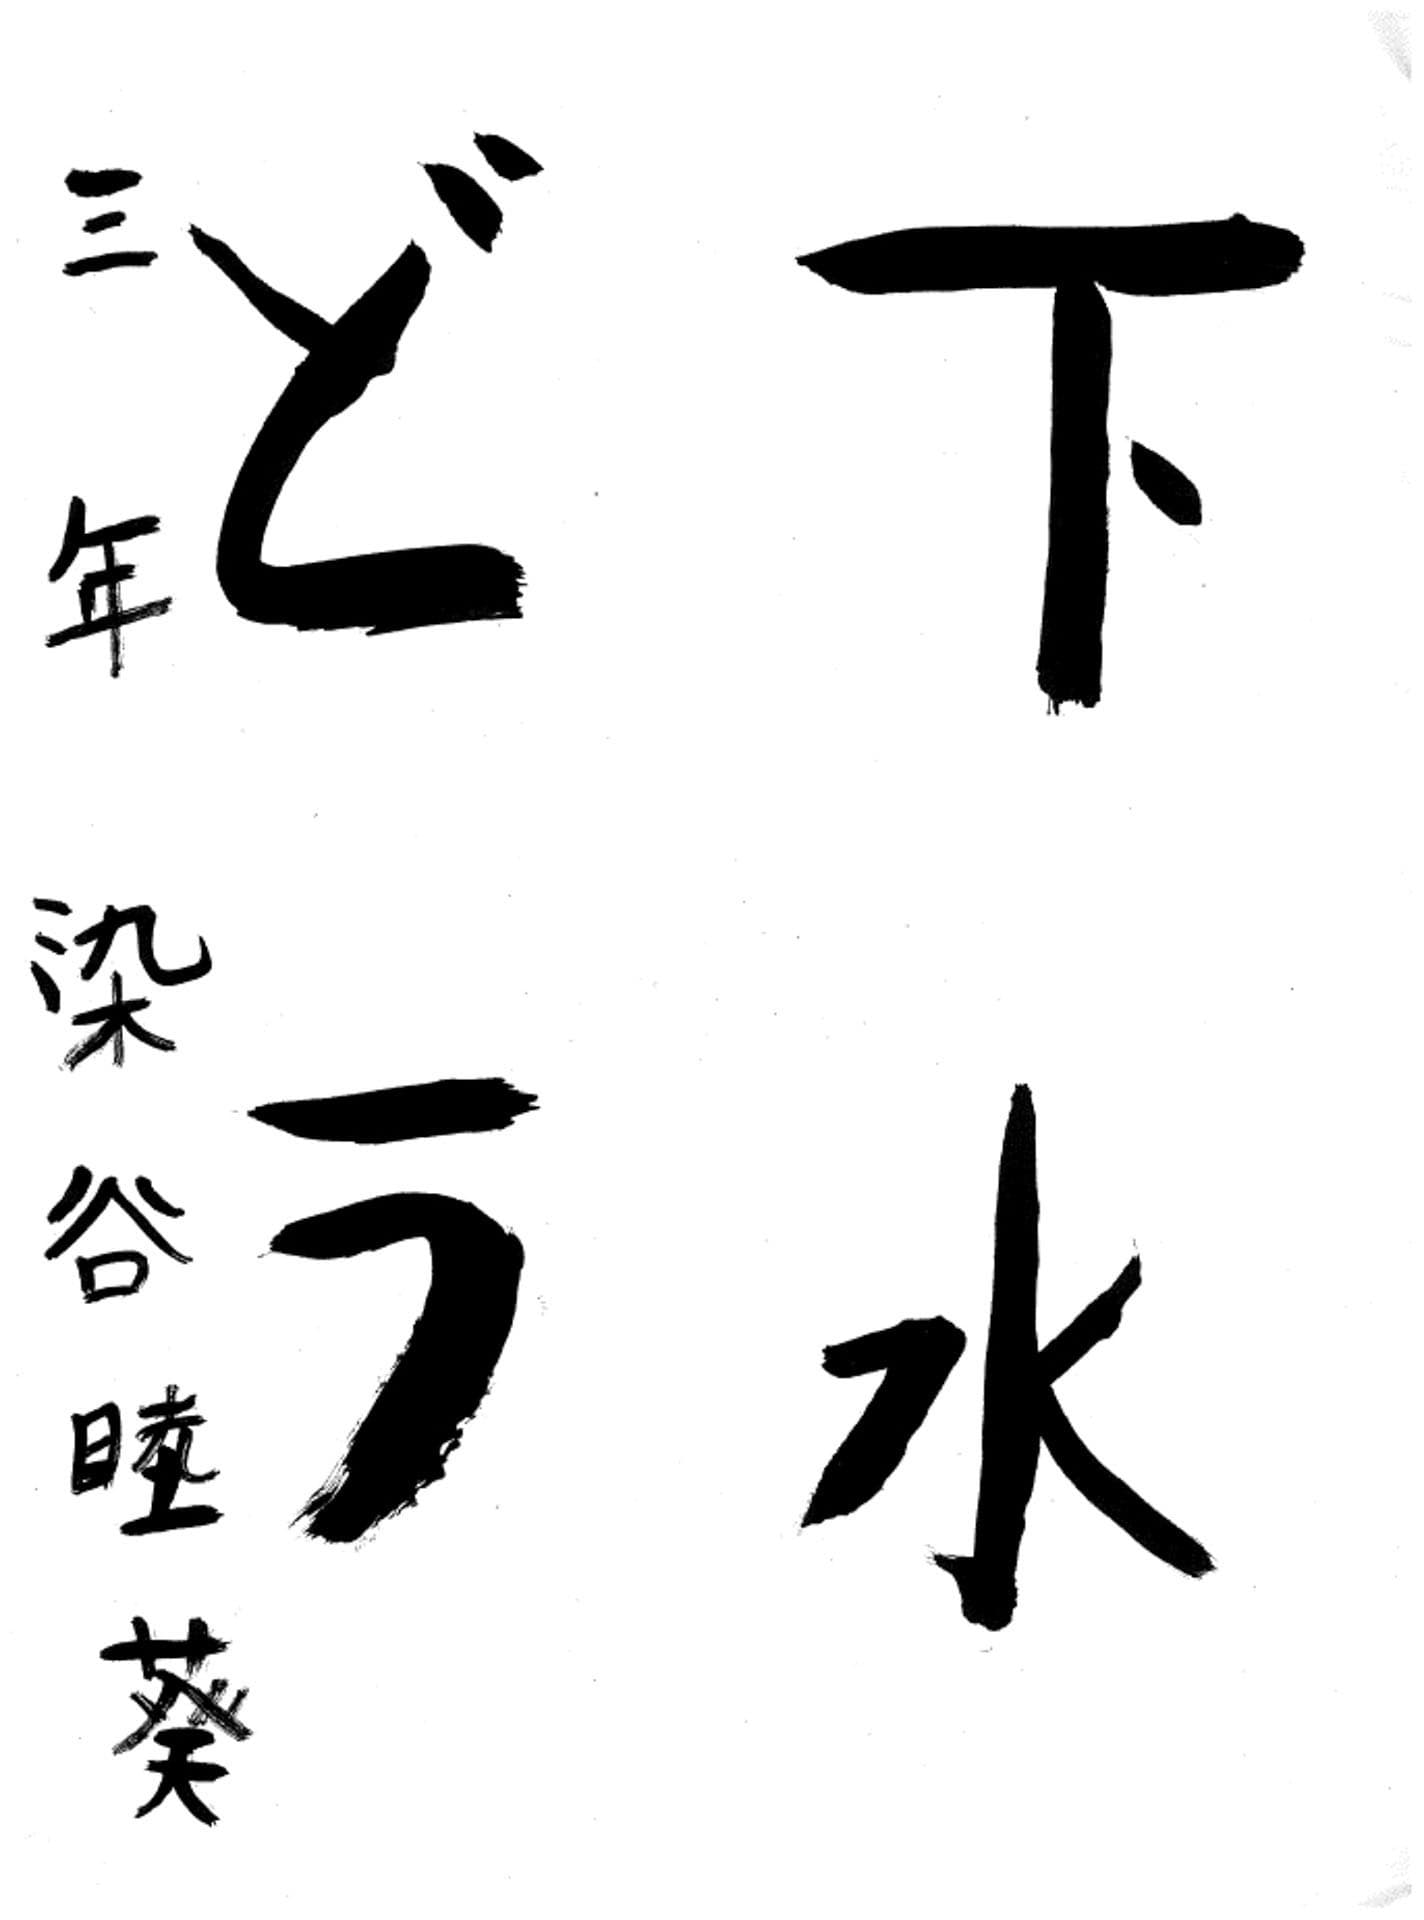 下水
どう
三年 染谷睦葵